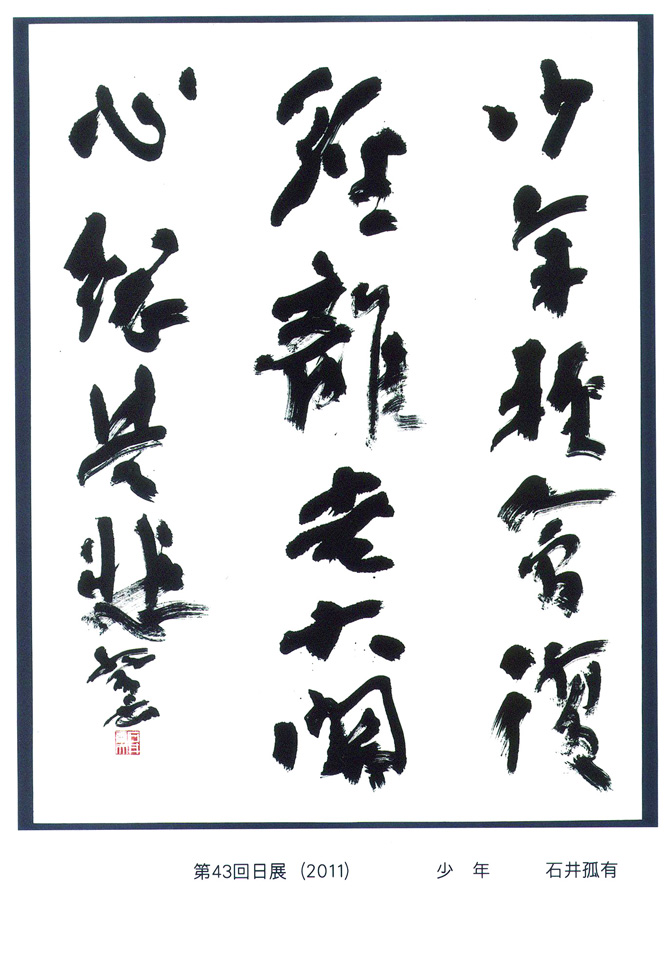 少年輕會復
輕離老大關
心總是悲
第43回日展 (2011) 少年 石井孤有